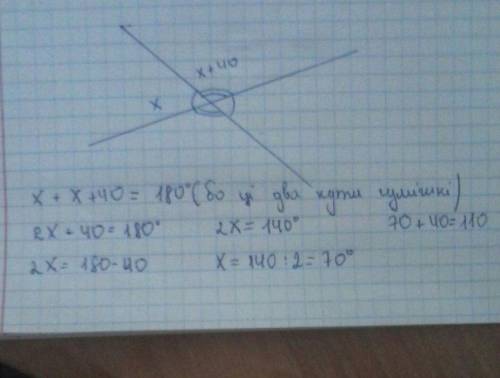 x+40
x
x + x+40 = 180° (бо ці два кути суміжні)
2x + 40 = 180° 2x = 140° 70+40=110
2x = 180-40 x = 140 : 2 = 70°